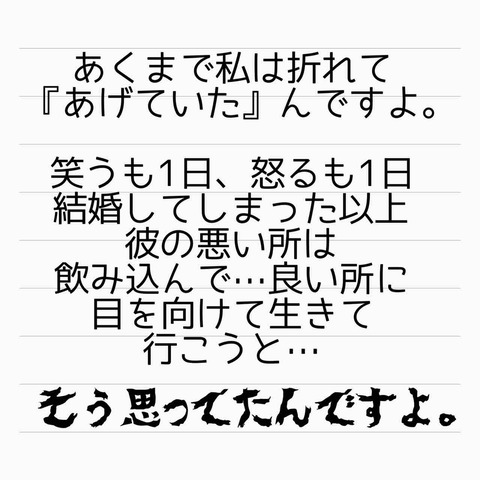 あくまで私は折れて
『あげていた』んですよ。
笑うも1日、怒るも1日
結婚してしまった以上
彼の悪い所は
飲み込んで…良い所に
目を向けて生きて
行こうと…
そう思ってたんですよ。